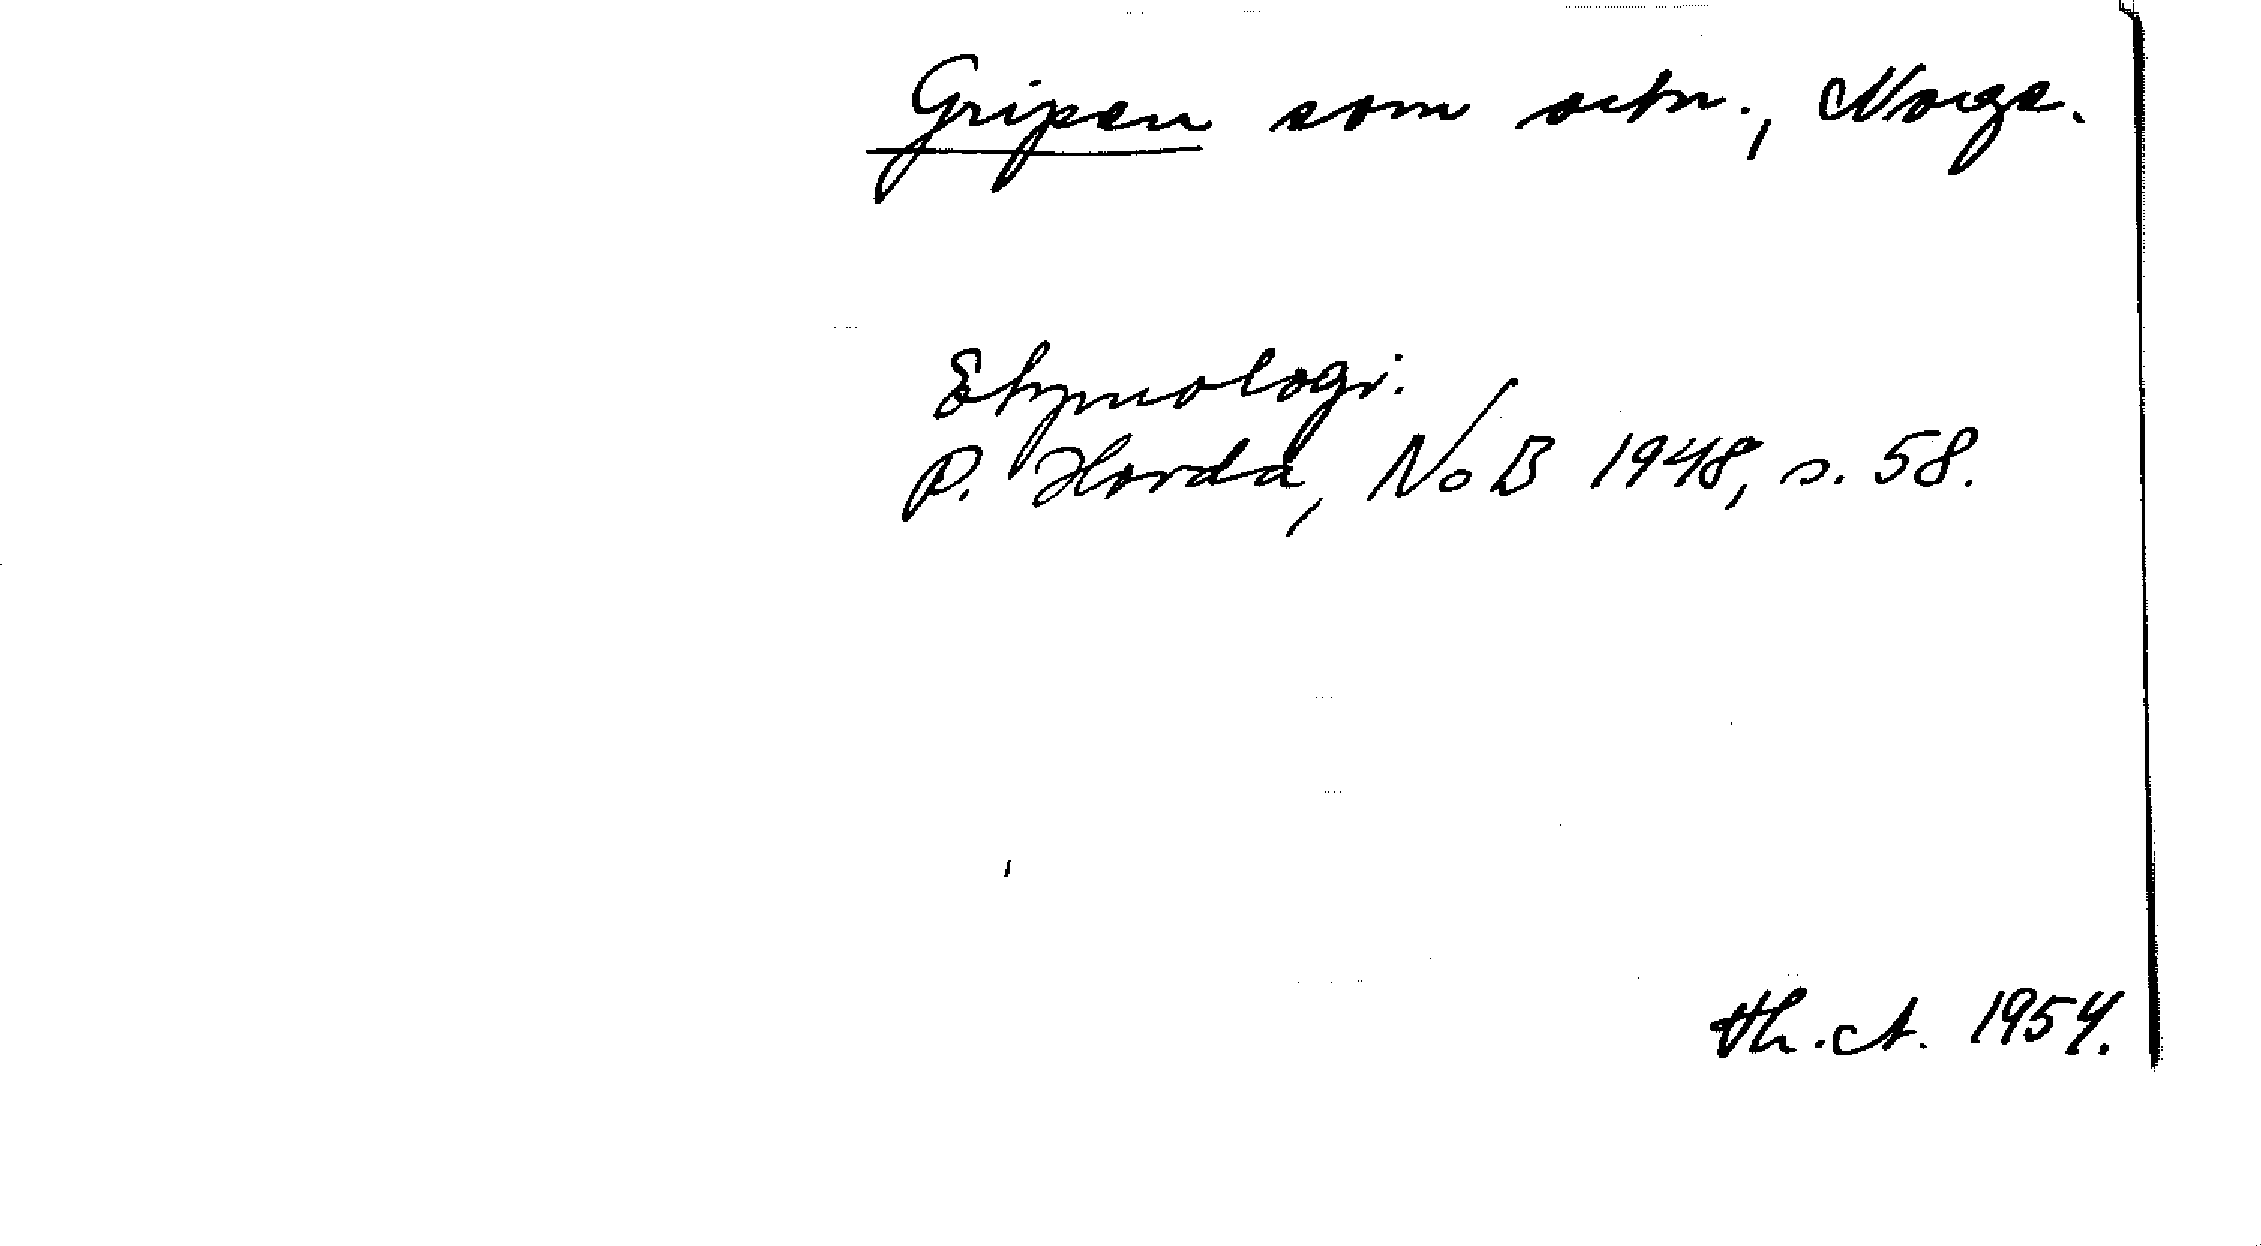 Gripen som ortn., Norge.
Etymologi.
P. Hovda, NoB 1948, s. 58.
Th. A. 1954.